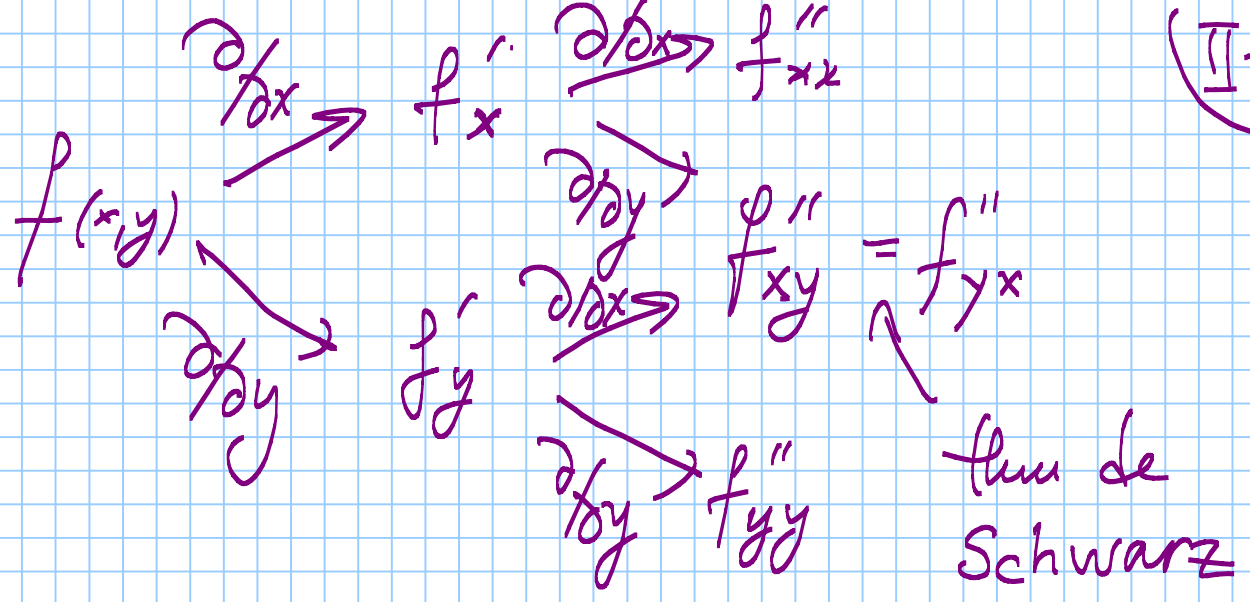 ∂/∂x f'x ∂/∂x f''xx (II.
f(x,y) ∂/∂y f''xy = f''yx
∂/∂y f'y ∂/∂x
∂/∂y f''yy
thm de
Schwarz